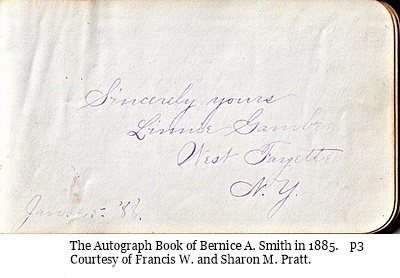 Sincerely yours
Linnie
West Fayette
N.Y.
'88.
The Autograph Book of Bernice A. Smith in 1885. p3
Courtesy of Francis W. and Sharon M. Pratt.